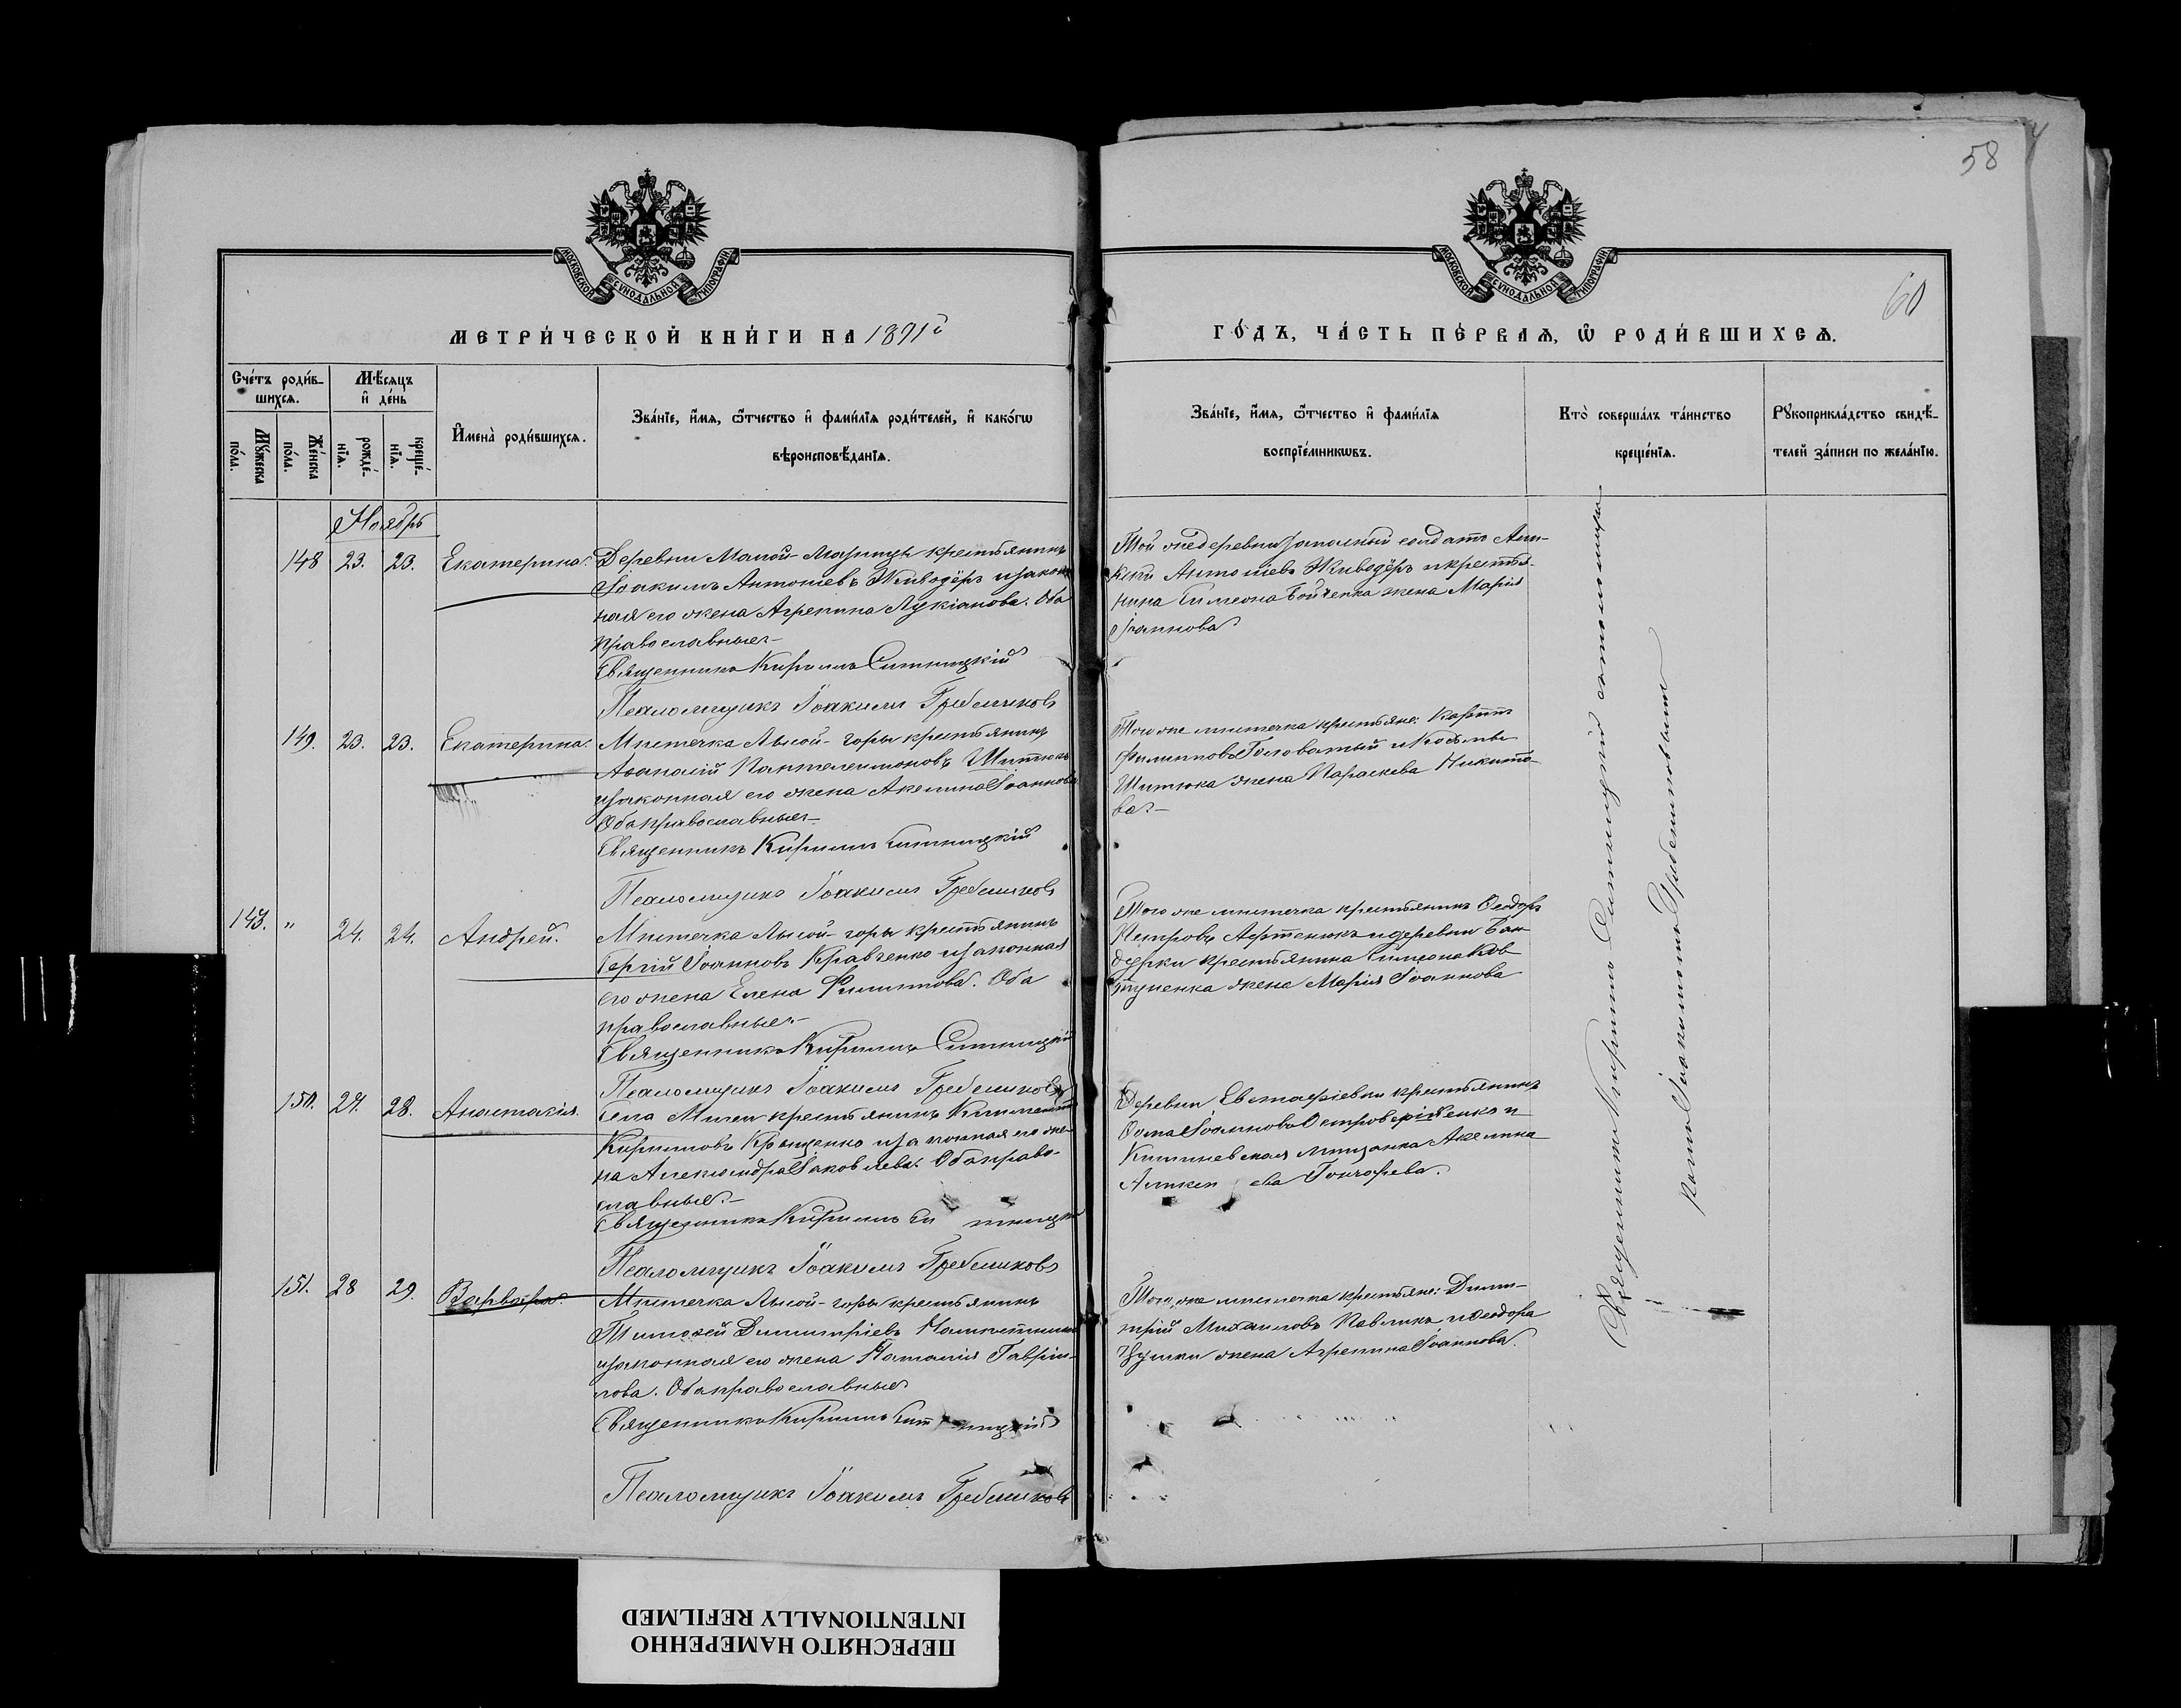 58
60
МОСКОВСКОЙ СѴНОДАЛЬНОЙ ТИПОГРАФІИ
МОСКОВСКОЙ СѴНОДАЛЬНОЙ ТИПОГРАФІИ
МЕТРИ́ЧЕСКОЙ КНИ́ГИ НА 1891й
ГО́ДЪ, ЧА́СТЬ ПЕ́РВАѦ, Ѡ҆ РОДИ́ВШИХСѦ.
Сче́тъ роди́в-
шихсѧ.
Мꙋ́жеска
по́ла.
Же́нска
по́ла.
Мѣ́сѧцъ
и҆ де́нь
рожде́-
нїѧ.
креще́-
нїѧ.
И҆мена̀ роди́вшихсѧ.
Зва́нїе, и҆́мѧ, ѻ҆́тчество и҆ фами́лїѧ роди́телей, и҆ како́гѡ
вѣроисповѣ́данїѧ.
Зва́нїе, и҆́мѧ, ѻ҆́тчество и҆ фами́лїѧ
воспрїе́мникѡвъ.
Кто̀ соверша́лъ та́инство
креще́нїѧ.
Рꙋкоприкла́дство свидѣ́-
телей за́писи по жела́нїю.
Ноябрь
148 23. 23. Екатерина. Деревни Малой-Марицы крестьянинъ
Іоакимъ Антоніевъ Живодёръ и закон
ная его жена Агрепина Лукіанова. Оба
православные
Священникъ Кириллъ Ситницкій
Псаломщикъ Іоакимъ Гребениковъ
Той же деревни запасный солдатъ
Антоніевъ Живодёръ и крестья-
нина Симеона Бойченка жена Марія
Іоаннова
149. 23. 23. Екатерина. Мѣстечка Лысой-горы крестьянинъ
Аѳанасій Пантелеимоновъ Шитюкъ
и законная его жена Акелина Іоаннова
Оба православные
Священникъ Кириллъ Ситницкій
Псаломщикъ Іоакимъ Гребениковъ
Того же мѣстечка крестьяне: Карпъ
Филипповъ Головатый и Козьмы
Шитюка жена Параскева Никито-
ва.
143. " 24. 24. Андрей. Мѣстечка Лысой-горы крестьянинъ
Сергій Іоанновъ Кравченко и законная
его жена Елена Филиппова. Оба
православные
Священникъ Кириллъ Ситницкій
Псаломщикъ Іоакимъ Гребениковъ
Того же мѣстечка крестьянинъ Ѳеодоръ
Петровъ Артенюкъ и деревни Бан
дурки крестьянина Симеона Ков
туненка жена Марія Іоаннова
150. 27. 28. Анастасія. Села крестьянинъ
Кирилловъ Крыщенко и законная его же-
на Александра Іаковлева. Оба право-
славные.
Священникъ Кириллъ Ситницкій
Псаломщикъ Іоакимъ Гребениковъ
Деревни Евстафіевки крестьянинъ
Ѳома Іоанновъ и
Кишиневская мѣщанка Акелина
Гончарева.
151. 28 29. Варвара. Мѣстечка Лысой-горы крестьянинъ
Тимоѳей Димитріевъ
и законная его жена Наталія Гаврии-
лова. Оба православные
Священникъ Кириллъ Ситницкій
Псаломщикъ Іоакимъ Гребениковъ
Того же мѣстечка крестьяне: Дими-
трій Михаиловъ Павликъ и Ѳеодора
жена Агрепина Іоаннова.
Священникъ Кириллъ Ситницкій съ псаломщи-
комъ Іоакимомъ Гребениковымъ
ПЕРЕСНЯТО НАМЕРЕННО
INTENTIONALLY REFILMED